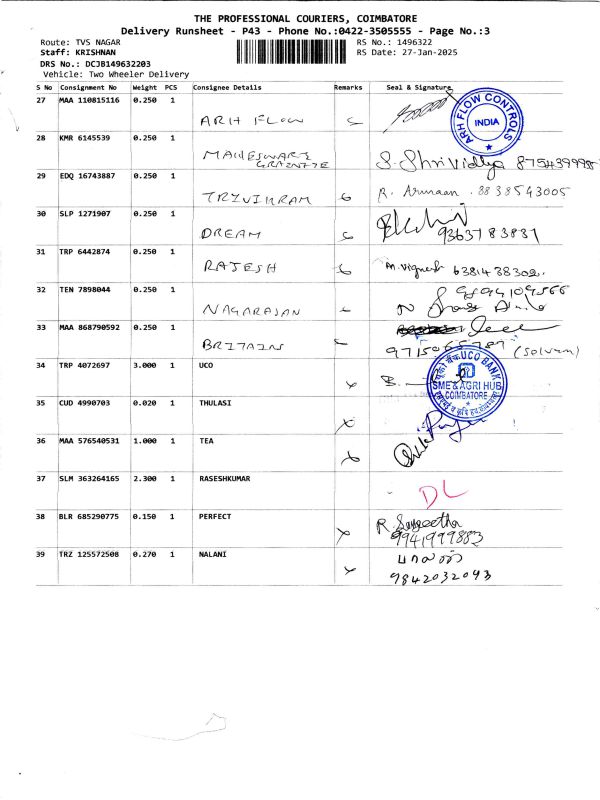 THE PROFESSIONAL COURIERS, COIMBATORE
Delivery Runsheet - P43 - Phone No.:0422-3505555 - Page No.:3
Route: TVS NAGAR
RS No.: 1496322
Staff: KRISHNAN
RS Date: 27-Jan-2025
DRS No.: DCJB149632203
Vehicle: Two Wheeler Delivery
S No Consignment No Weight PCS Consignee Details Remarks Seal & Signature
27 MAA 110815116 0.250 1
ARH FLOW
ARH FLOW CONTROLS
INDIA
28 KMR 6145539 0.250 1
MAHESWARI
S. Shri Vidhya
29 EDQ 16743887 0.250 1
TRIVIKRAM
8838543005
30 SLP 1271907 0.250 1
DREAM
9363783831
31 TRP 6442874 0.250 1
RAJESH
M. Vignesh
32 TEN 7898044 0.250 1
NAGARAJAN
33 MAA 868790592 0.250 1
BRITAIN
34 TRP 4072697 3.000 1 UCO
UCO BANK
SME & AGRI HUB
COIMBATORE
35 CUD 4990703 0.020 1 THULASI
36 MAA 576540531 1.000 1 TEA
37 SLM 363264165 2.300 1 RASESHKUMAR
DL
38 BLR 685290775 0.150 1 PERFECT
R. Sangeetha
9941999883
39 TRZ 125572508 0.270 1 NALANI
9842032093